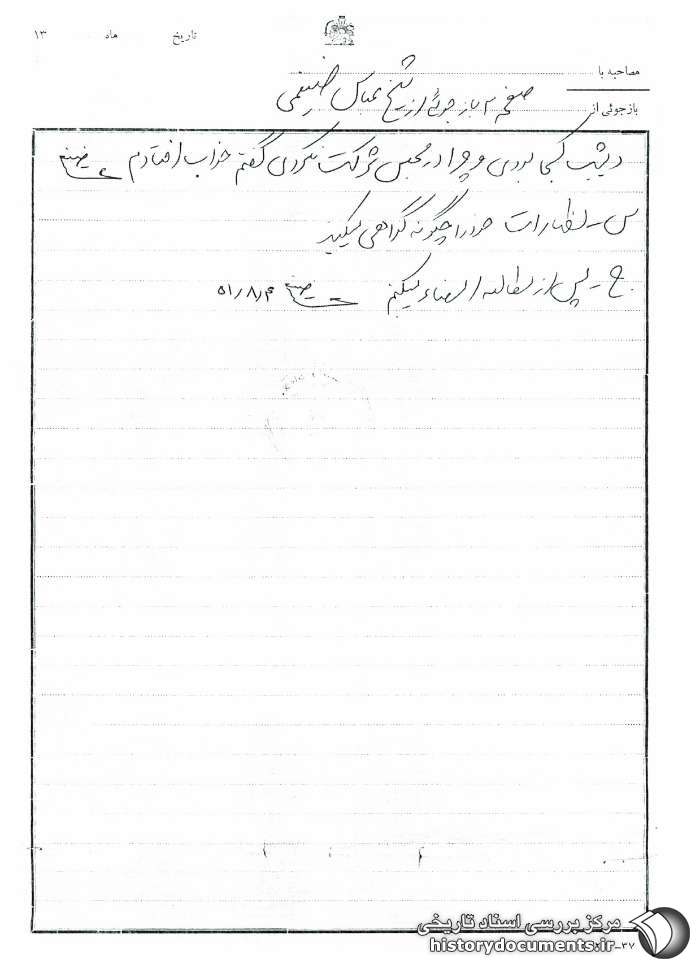 تاریخ ماه ۱۳
مصاحبه با
بازجوئی از
صفحه ۲ بازجوئی از شیخ عباس ضیغمی
دیشب کجا بودی و چرا در مجلس شرکت نکردی گفتم خواب افتادم
س - اظهارات خود را چگونه گواهی میکنید
ج - پس از مطالعه امضاء میکنم ۵۱/۸/۴
مرکز بررسی اسناد تاریخی
historydocuments.ir
۳۷